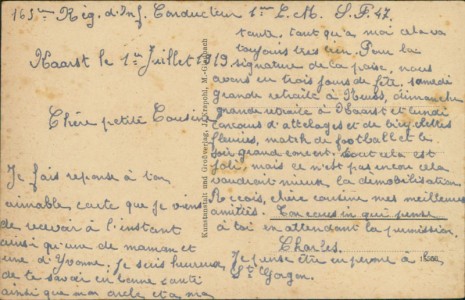 165ème Rég. d'Inf. Conducteur 1ère C. M. S. P. 47.
Kaarst le 1er Juillet 1919
Chère petite Cousine
Je fais réponse à ton
aimable carte que je viens
de recevoir à l'instant
ainsi qu'une de maman et
une d'Yvonne. Je suis heureux
de te savoir en bonne santé
ainsi que mon oncle et ma
tante, tant qu'à moi cela va
toujours très bien. Pour la
signature de la paix, nous
avons eu trois jours de fête, samedi
grande retraite à Neuss, dimanche
grande retraite à Kaarst et lundi
concours d'attelages et de bicyclettes
fleuries, match de football et le
soir grand concert. Tout cela est
joli, mais ce n'est pas encore cela
vaudrait mieux la démobilisation.
Reçois, chère cousine mes meilleures
amitiés. Ton cousin qui pense
à toi en attendant la permission.
Charles.
Je pense être en perme à la
St Gorgon.
Kunstanstalt und Großverlag, M.-Gladbach